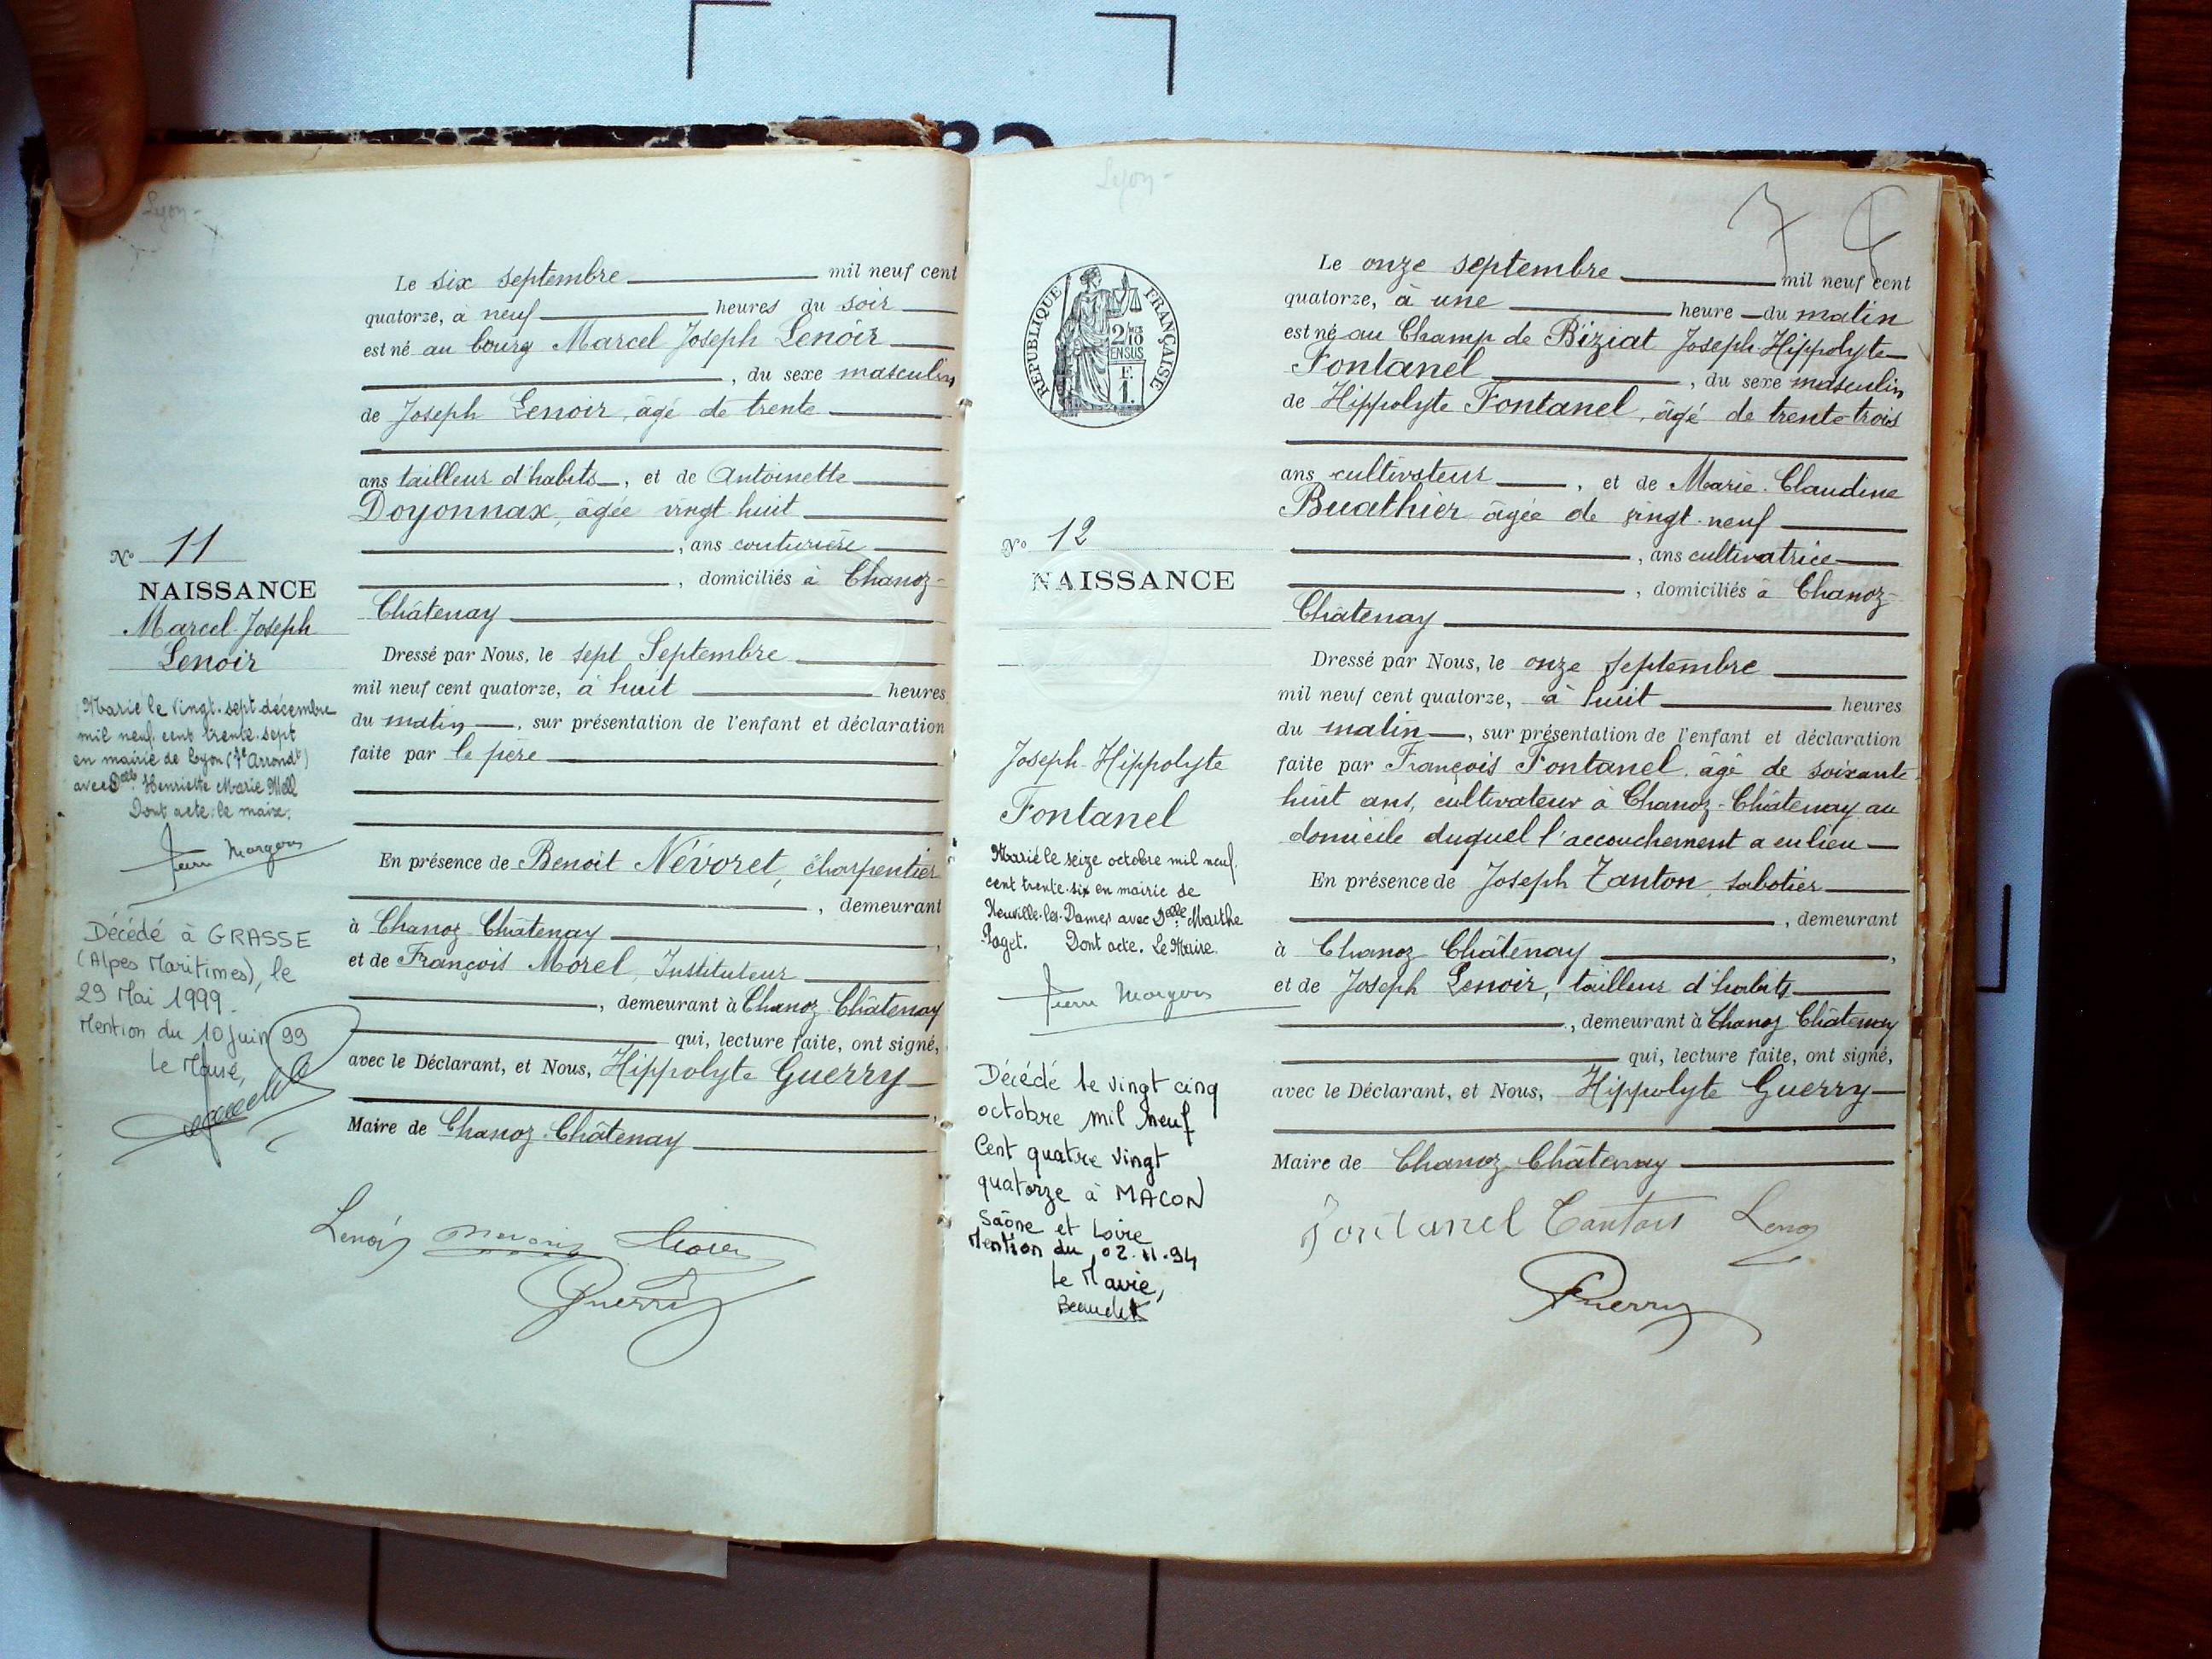 Lyon -
Le six septembre mil neuf cent
quatorze, à neuf heures du soir
est né au bourg Marcel Joseph Lenoir
, du sexe masculin
de Joseph Lenoir, âgé de trente
ans tailleur d'habits, et de Antoinette
Doyonnax, âgée vingt huit
, ans couturière
, domiciliés à Chanoz-
Châtenay
Dressé par Nous, le sept Septembre
mil neuf cent quatorze, à huit heures
du matin, sur présentation de l'enfant et déclaration
faite par le père
En présence de Benoit Névoret, charpentier
, demeurant
à Chanoz-Châtenay,
et de François Morel, Instituteur
, demeurant à Chanoz-Châtenay
qui, lecture faite, ont signé,
avec le Déclarant, et Nous, Hippolyte Guerry
,
Maire de Chanoz-Châtenay
Lenoir Morel
Guerry
No 11
NAISSANCE
Marcel Joseph
Lenoir
Marié le vingt-sept décembre
mil neuf cent trente-sept
en mairie de Lyon ( Arrondt)
avec Delle Henriette Marie
Dont acte: le maire:
Pierre
Décédé à GRASSE
(Alpes Maritimes), le
29 Mai 1999.
Mention du 10 Juin 99
Le Maire,
Lyon -
7
RÉPUBLIQUE FRANÇAISE
2 10
EN SUS
F.
1.
Le onze septembre mil neuf cent
quatorze, à une heure du matin
est né au Champ de Biziat Joseph-Hippolyte
Fontanel, du sexe masculin
de Hippolyte Fontanel, âgé de trente-trois
ans cultivateur, et de Marie-Claudine
Buathier âgée de vingt-neuf
, ans cultivatrice
, domiciliés à Chanoz-
Châtenay
Dressé par Nous, le onze septembre
mil neuf cent quatorze, à huit heures
du matin, sur présentation de l'enfant et déclaration
faite par François Fontanel, âgé de soixante
huit ans, cultivateur à Chanoz-Châtenay au
domicile duquel l'accouchement a eu lieu
En présence de Joseph Tanton, sabotier
, demeurant
à Chanoz-Châtenay,
et de Joseph Lenoir, tailleur d'habits
, demeurant à Chanoz-Châtenay
qui, lecture faite, ont signé,
avec le Déclarant, et Nous, Hippolyte Guerry
Maire de Chanoz-Châtenay
Fontanel Lenoir
Guerry
No 12
NAISSANCE
Joseph-Hippolyte
Fontanel
Marié le seize octobre mil neuf
cent trente-six en mairie de
Neuville-les-Dames avec Delle Marthe
Paget. Dont acte. Le Maire.
Pierre
Décédé le vingt cinq
octobre mil neuf
Cent quatre vingt
quatorze à MACON
Saône et Loire
Mention du 02.11.94
Le Maire,